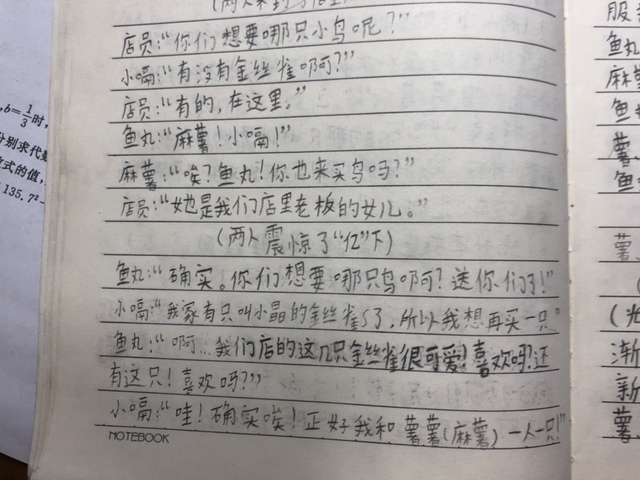 (两人来到了店里)
店员:“你们想要哪只小鸟呢?”
小嗝:“有没有金丝雀啊?”
店员:“有的,在这里。”
鱼丸:“麻薯!小嗝!”
麻薯:“唉?鱼丸!你也来买鸟吗?”
店员:“她也是我们店里老板的女儿。”
(两人震惊了“亿”下)
鱼丸:“确实。你们想要哪只鸟啊?送你们了!”
小嗝:“我家有只叫小晶的金丝雀了,所以我想再买一只”
鱼丸:“啊...我们店的这几只金丝雀很可爱!喜欢吗?还
有这只!喜欢吗?”
小嗝:“哇!确实唉!正好我和薯薯(麻薯)一人一只!”
NOTEBOOK
,b=1/3时,
分别求代数
式的值,
135.7²-
服
鱼丸
麻薯
鱼
薯
鱼
薯
(
渐
新
薯